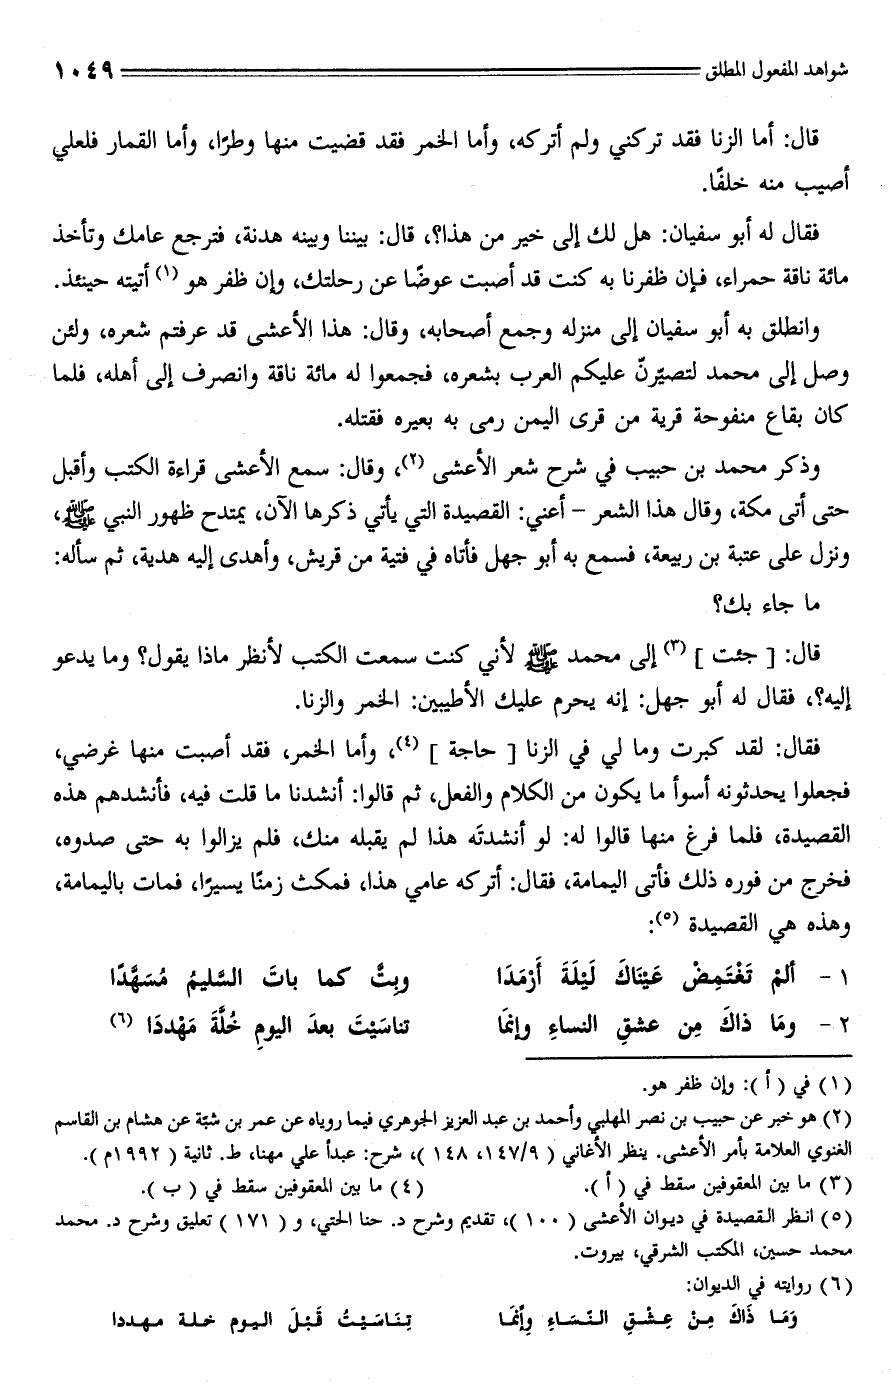 شواهد المفعول المطلق ١٠٤٩
قال: أما الزنا فقد تركني ولم أتركه، وأما الخمر فقد قضيت منها وطرًا، وأما القمار فلعلي
أصيب منه خلفًا.
فقال له أبو سفيان: هل لك إلى خير من هذا؟، قال: بيننا وبينه هدنة، فترجع عامك وتأخذ
مائة ناقة حمراء، فإن ظفرنا به كنت قد أصبت عوضًا عن رحلتك، وإن ظفر هو (١) أتيته حينئذ.
وانطلق به أبو سفيان إلى منزله وجمع أصحابه، وقال: هذا الأعشى قد عرفتم شعره، ولئن
وصل إلى محمد لتصيّرنّ عليكم العرب بشعره، فجمعوا له مائة ناقة وانصرف إلى أهله، فلما
كان بقاع منفوحة قرية من قرى اليمن رمى به بعيره فقتله.
وذكر محمد بن حبيب في شرح شعر الأعشى (٢)، وقال: سمع الأعشى قراءة الكتب وأقبل
حتى أتى مكة، وقال هذا الشعر - أعني: القصيدة التي يأتي ذكرها الآن، يمتدح ظهور النبي ﷺ،
ونزل على عتبة بن ربيعة، فسمع به أبو جهل فأتاه في فتية من قريش، وأهدى إليه هدية، ثم سأله:
ما جاء بك؟
قال: [ جئت ] (٣) إلى محمد ﷺ لأني كنت سمعت الكتب لأنظر ماذا يقول؟ وما يدعو
إليه؟، فقال له أبو جهل: إنه يحرم عليك الأطيبين: الخمر والزنا.
فقال: لقد كبرت وما لي في الزنا [ حاجة ] (٤)، وأما الخمر، فقد أصبت منها غرضي،
فجعلوا يحدثونه أسوأ ما يكون من الكلام والفعل، ثم قالوا: أنشدنا ما قلت فيه، فأنشدهم هذه
القصيدة، فلما فرغ منها قالوا له: لو أنشدتَه هذا لم يقبله منك، فلم يزالوا به حتى صدوه،
فخرج من فوره ذلك فأتى اليمامة، فقال: أتركه عامي هذا، فمكث زمنًا يسيرًا، فمات باليمامة،
وهذه هي القصيدة (٥):
١ - ألمْ تَغْتَمِضْ عَيْنَاكَ لَيْلَةَ أَرْمَدَا وبِتَّ كما باتَ السَّليمُ مُسَهَّدًا
٢ - ومَا ذاكَ مِن عشقِ النساءِ وإنمَا تناسَيْتَ بعدَ اليومِ خُلَّةَ مَهْددَا (٦)
(١) في ( أ ): وإن ظفر هو.
(٢) هو خبر عن حبيب بن نصر المهلبي وأحمد بن عبد العزيز الجوهري فيما روياه عن عمر بن شبّة عن هشام بن القاسم
الغنوي العلامة بأمر الأعشى. ينظر الأغاني ( ١٤٧/٩، ١٤٨ )، شرح: عبدأ علي مهنا، ط. ثانية ( ١٩٩٢م ).
(٣) ما بين المعقوفين سقط في ( أ ). (٤) ما بين المعقوفين سقط في ( ب ).
(٥) انظر القصيدة في ديوان الأعشى ( ١٠٠ )، تقديم وشرح د. حنا الحتي، و ( ١٧١ ) تعليق وشرح د. محمد
محمد حسين، المكتب الشرقي، بيروت.
(٦) روايته في الديوان:
وَمَا ذَاكَ مِنْ عِشْقِ النّسَاءِ وِإنَّمَا تِنَاسَيْتُ قَبْلَ اليوم خلة مهددا